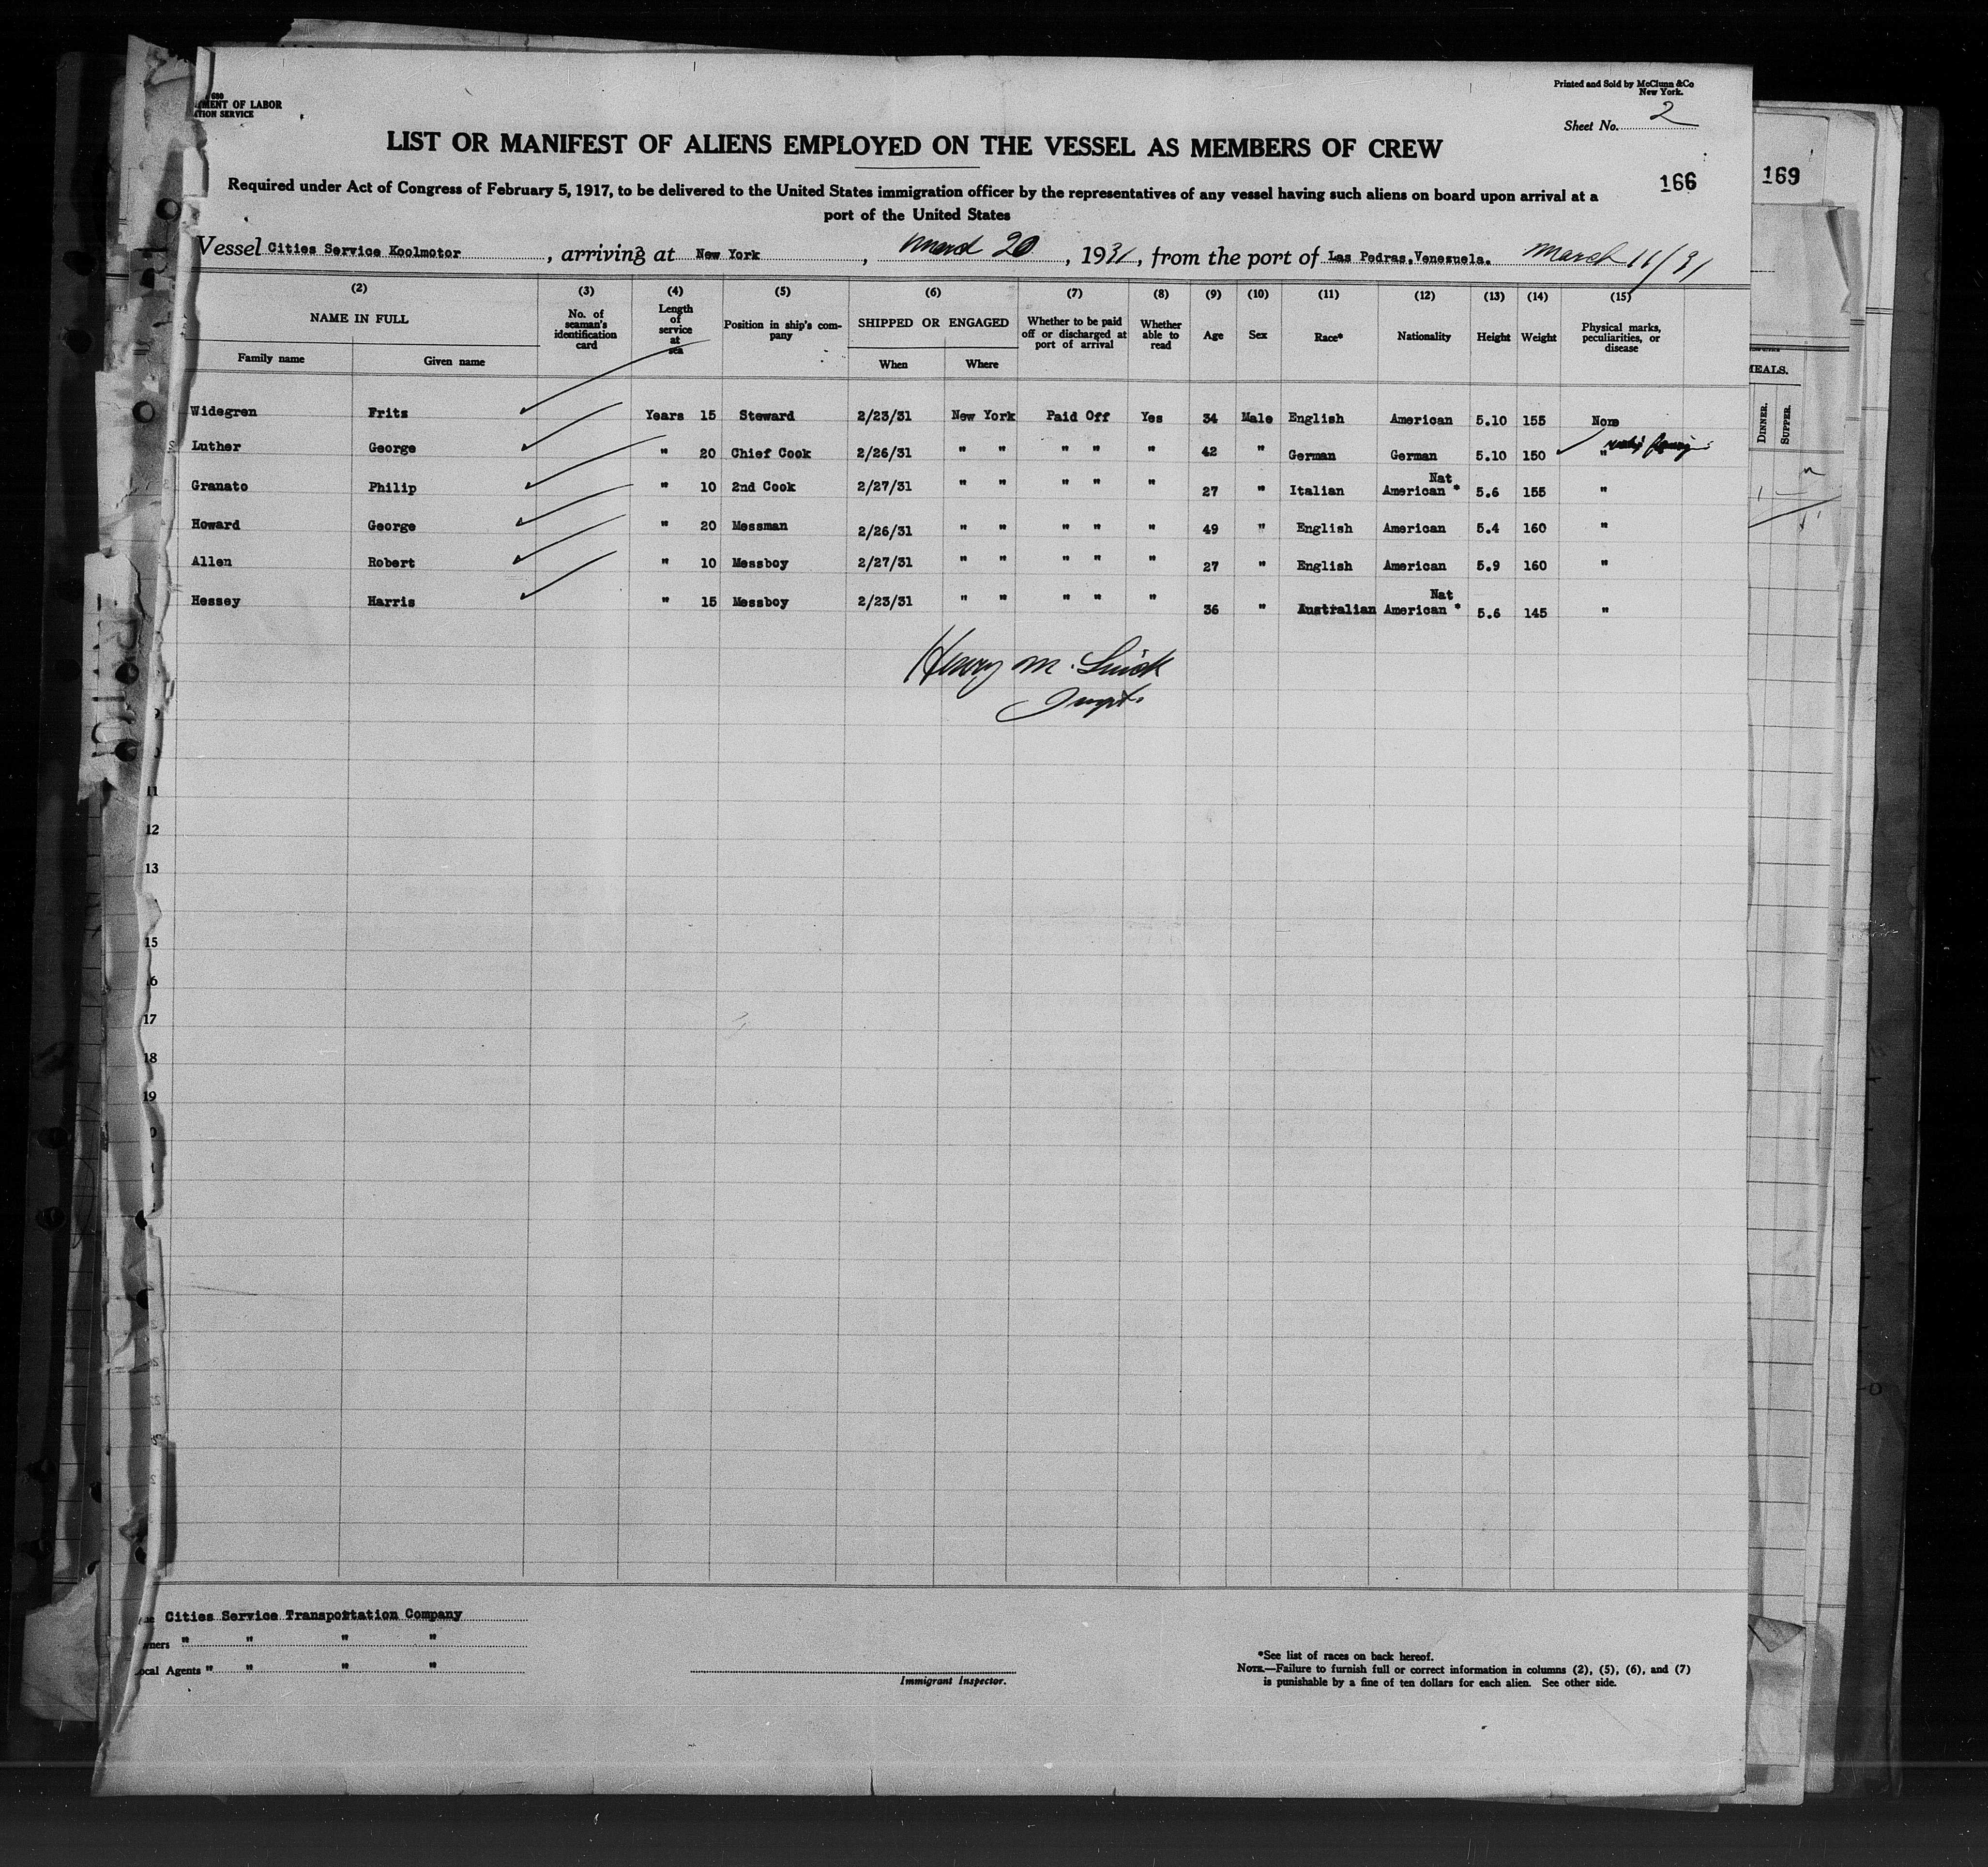 600
MENT OF LABOR
TION SERVICE
Printed and Sold by McClunn & Co
New York.
Sheet No. 2
LIST OR MANIFEST OF ALIENS EMPLOYED ON THE VESSEL AS MEMBERS OF CREW
166
169
Required under Act of Congress of February 5, 1917, to be delivered to the United States immigration officer by the representatives of any vessel having such aliens on board upon arrival at a
port of the United States
Vessel Cities Service Koolmotor, arriving at New York, March 20, 1931, from the port of Las Pedras, Venezuela. March 11/31
(2) (3) (4) (5) (6) (7) (8) (9) (10) (11) (12) (13) (14) (15)
NAME IN FULL
Family name Given name
No. of seaman's identification card
Length of service at sea
Position in ship's company
SHIPPED OR ENGAGED
When Where
Whether to be paid off or discharged at port of arrival
Whether able to read
Age
Sex
Race*
Nationality
Height
Weight
Physical marks, peculiarities, or disease
MEALS.
DINNER.
SUPPER.
Widegren Frits Years 15 Steward 2/23/31 New York Paid Off Yes 34 Male English American 5.10 155 None
Luther George " 20 Chief Cook 2/26/31 " " " " " 42 " German German 5.10 150 "
Granato Philip " 10 2nd Cook 2/27/31 " " " " " 27 " Italian Nat American * 5.6 155 "
Howard George " 20 Messman 2/26/31 " " " " " 49 " English American 5.4 160 "
Allen Robert " 10 Messboy 2/27/31 " " " " " 27 " English American 5.9 160 "
Hessey Harris " 15 Messboy 2/23/31 " " " " " 36 " Australian Nat American * 5.6 145 "
Henry M.
Inspt.
11
12
13
15
6
17
18
19
Cities Service Transportation Company
ners " " " "
ocal Agents " " " "
Immigrant Inspector.
*See list of races on back hereof.
NOTE.—Failure to furnish full or correct information in columns (2), (5), (6), and (7)
is punishable by a fine of ten dollars for each alien. See other side.